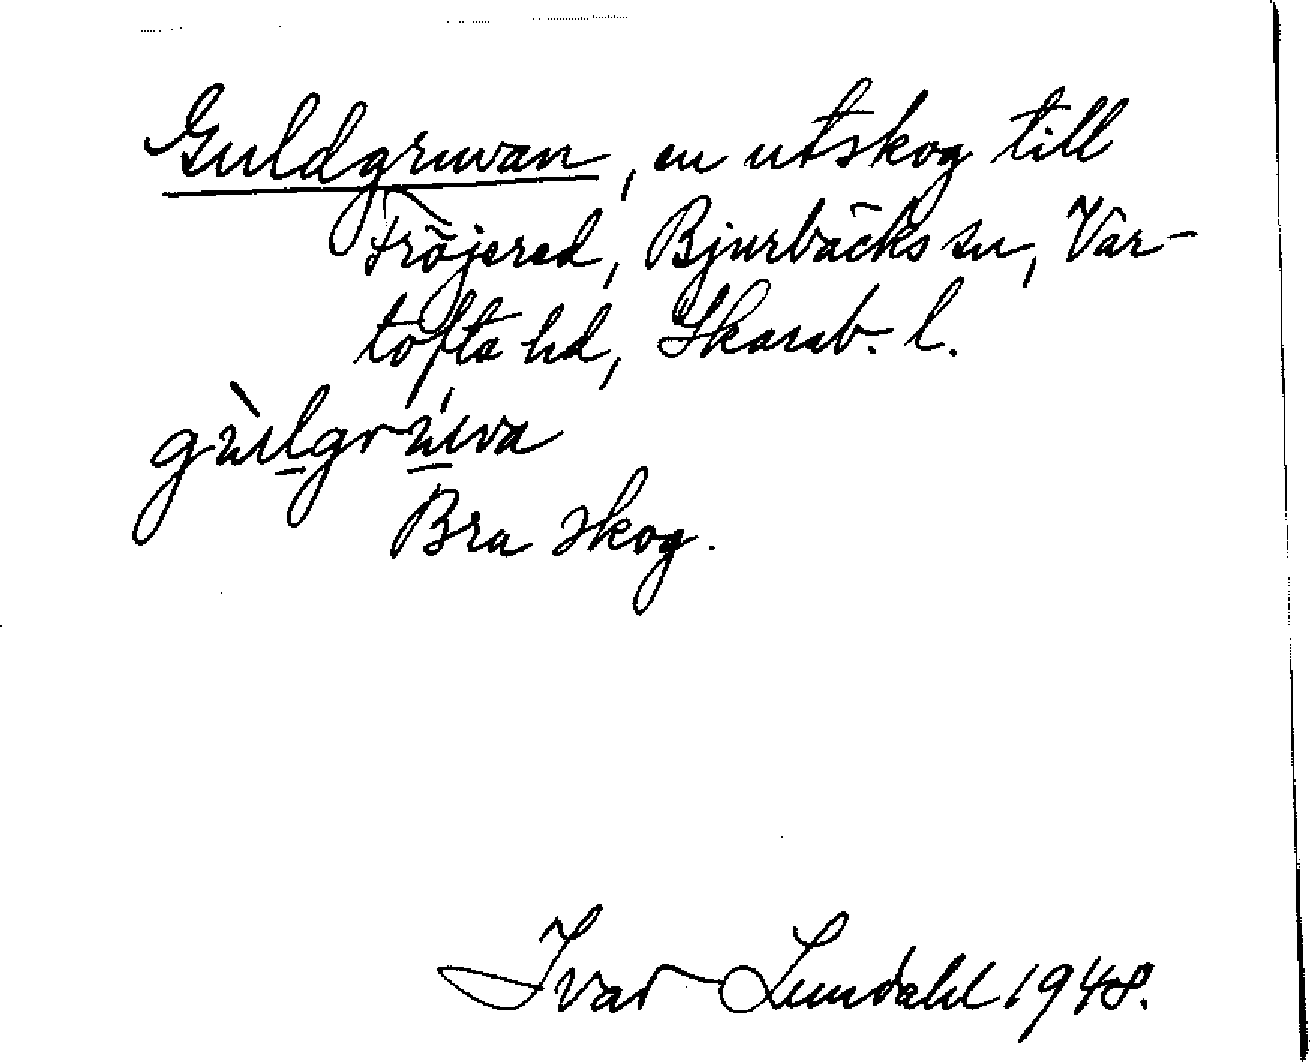 Guldgruvan, en utskog till
Fröjered, Bjurbäcks sn, Var-
tofta hd, Skarab. l.
gùlgrúva
Bra skog.
Ivar Lundahl 1948.